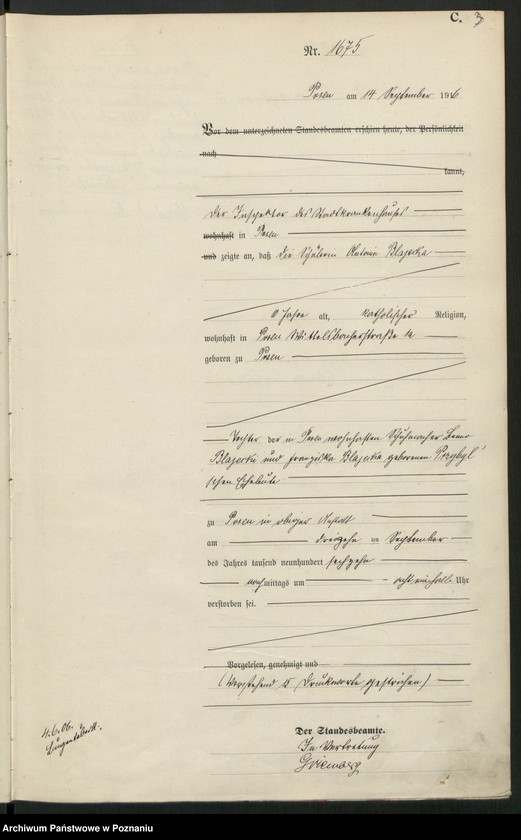 C. 3
Nr. 1675
Posen am 14 September 1916
Vor dem unterzeichneten Standesbeamten erschien heute, der Persönlichkeit
nach
kannt,
Der Inspektor des Stadtkrankenhauses
wohnhaft in Posen
und zeigte an, daß die Schülerin Antonie Blazerka
Jahre alt, katholischer Religion,
wohnhaft in Posen Wittelsbacherstraße
geboren zu Posen
Tochter der in Posen wohnhaften Schuhmacher
und Franziska Blazerka geborenen Przybyl
schen Eheleute
zu Posen in obiger Anstalt
am dreizehn ten September
des Jahres tausend neunhundert sechzehn
nachmittags um acht einhalb Uhr
verstorben sei.
Vorgelesen, genehmigt und
(Vorstehend 15 Druckworte gestrichen)
Der Standesbeamte.
In Vertretung
4.6.06.
Archiwum Państwowe w Poznaniu